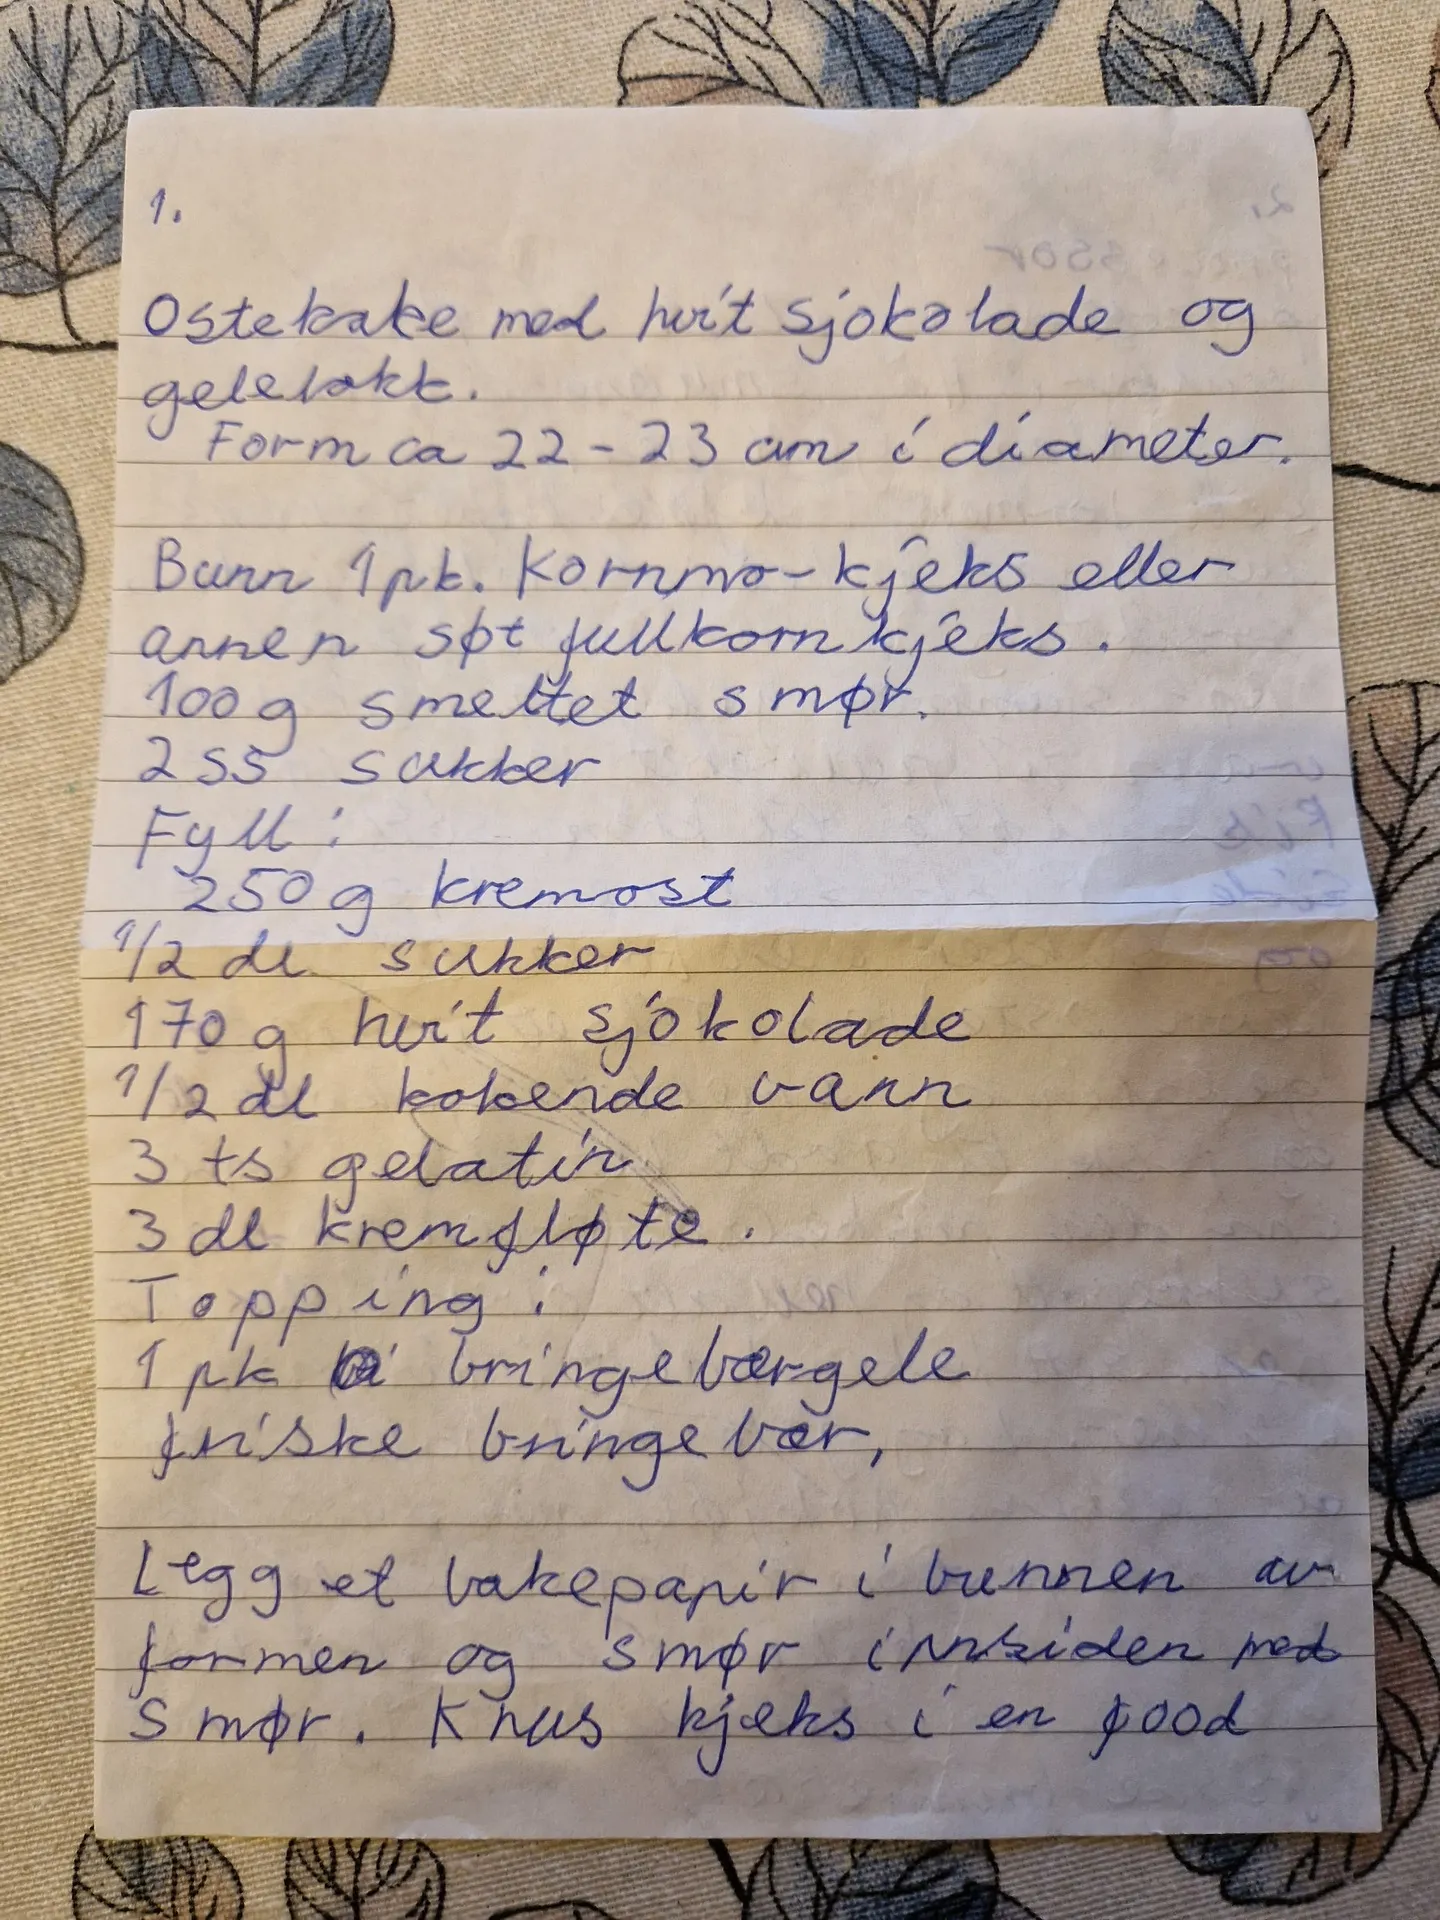 1.
Ostekake med hvit sjokolade og
gelelokk.
Form ca 22-23 cm i diameter.
Bunn 1 pk. Kornmo-kjeks eller
annen søt fullkornkjeks.
100 g smeltet smør.
2 ss sukker
Fyll:
250 g kremost
1/2 dl sukker
170 g hvit sjokolade
1/2 dl kokende vann
3 ts gelatin
3 dl kremfløte.
Topping:
1 pk bringebærgele
friske bringebær,
Legg et bakepapir i bunnen av
formen og smør innsiden med
smør. Knus kjeks i en food